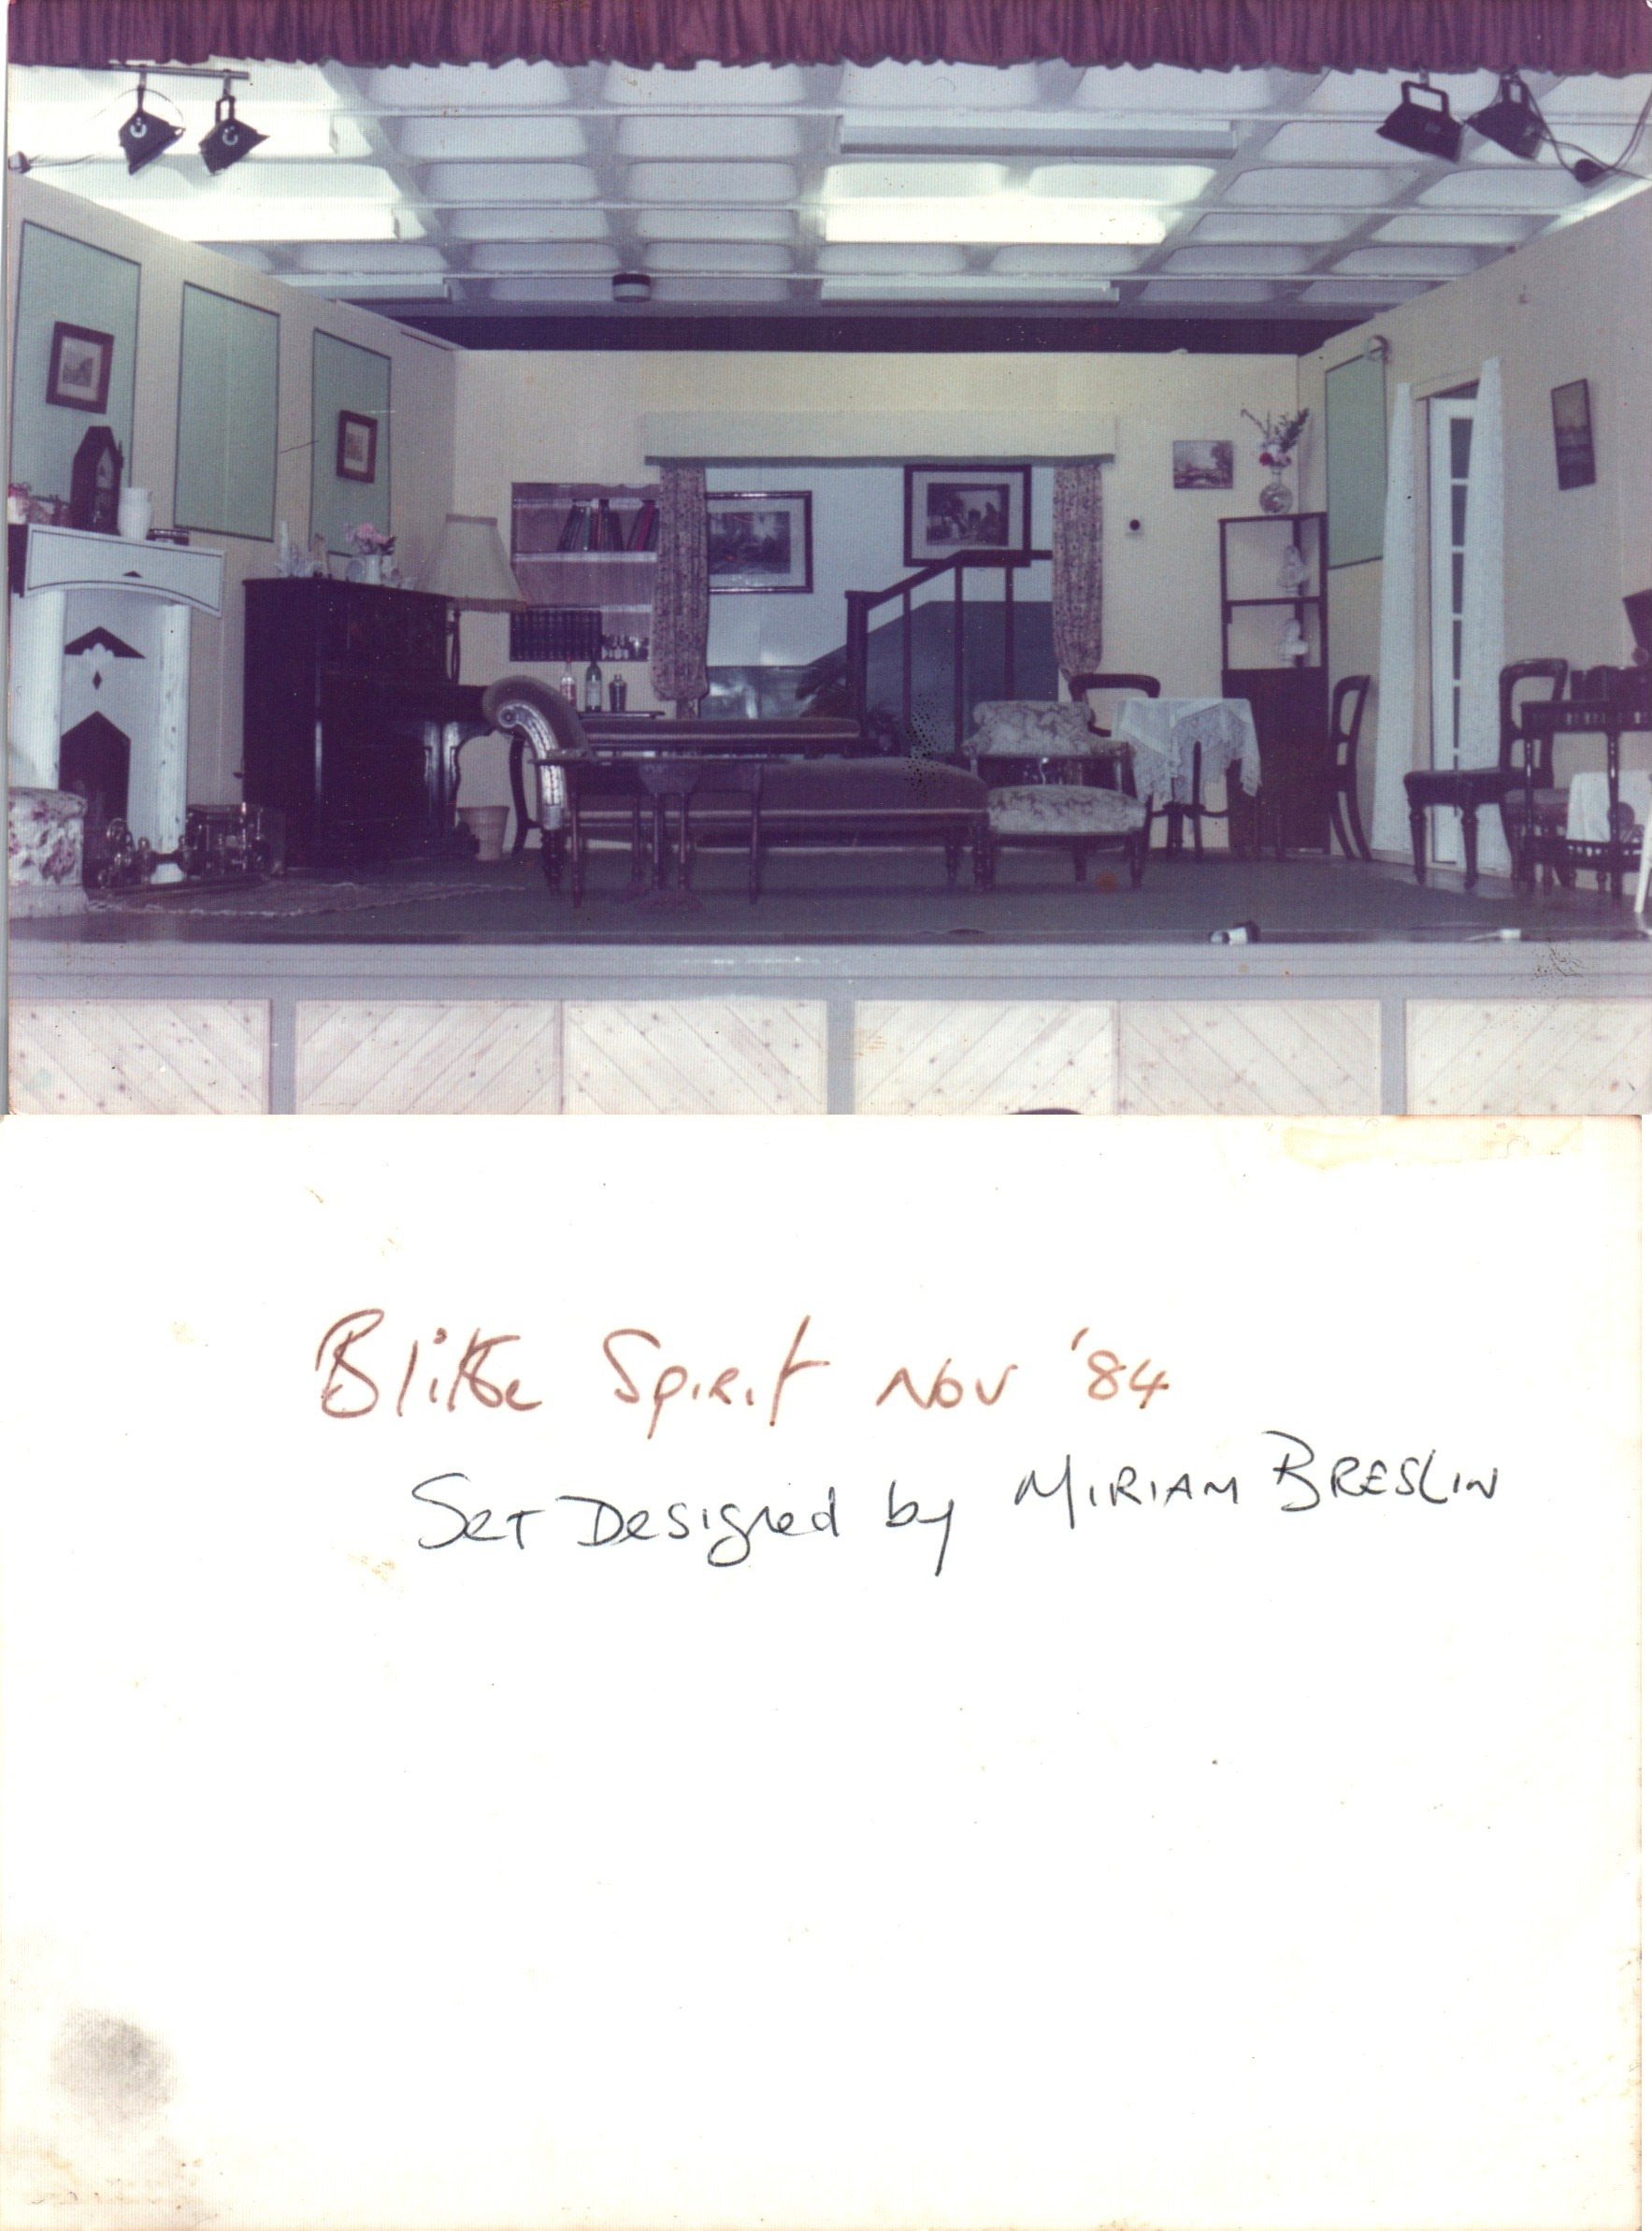 Blithe Spirit Nov '84
Set Designed by MIRIAM BRESLIN